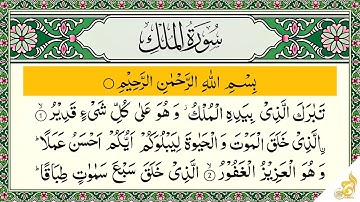 سُورَةُ الْمُلْكِ
بِسْمِ اللهِ الرَّحْمٰنِ الرَّحِيْمِ
تَبٰرَكَ الَّذِىْ بِيَدِهِ الْمُلْكُ ۫ وَهُوَ عَلٰى كُلِّ شَىْءٍ قَدِيْرُ ۨ ۝۱
الَّذِىْ خَلَقَ الْمَوْتَ وَ الْحَيٰوةَ لِيَبْلُوَكُمْ اَيُّكُمْ اَحْسَنُ عَمَلًا ؕ
وَ هُوَ الْعَزِيْزُ الْغَفُوْرُ ۝۲ الَّذِىْ خَلَقَ سَبْعَ سَمٰوٰتٍ طِبَاقًا ؕ